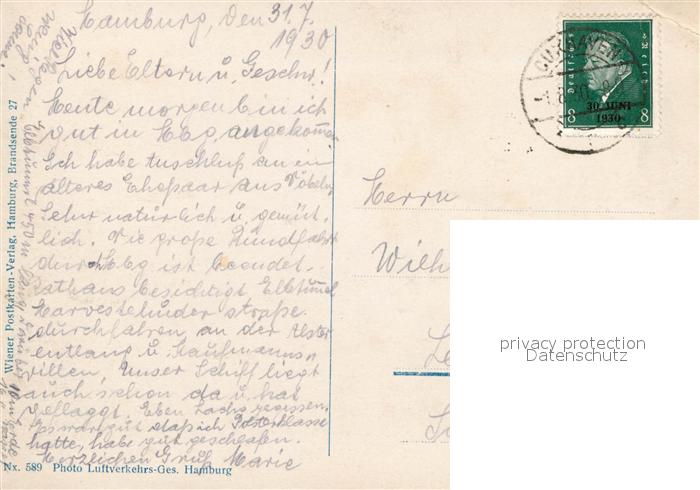 Hamburg, den 31.7.
1930
Liebe Eltern u. Geschw.!
Heute morgen bin ich
gut in Hbg. angekommen
Ich habe Anschluß an ein
älteres Ehepaar aus
Sehr natürlich u. gemüt
lich. Die große Rundfahrt
durch Hbg ist beendet.
Rathaus besichtigt Elbtunnel
Harvestehuder straße
durchfahren an der Alster
entlang u. Kaufmanns
villen, Unser Schiff liegt
auch schon da u. hat
geflaggt. Eben Lachs gegessen.
Es war gut daß ich Polsterklasse
hatte, habe gut geschlafen.
Herzlichen Gruß Marie
Elbtunnel 450 m lang
Wiener Postkarten-Verlag, Hamburg, Brandsende 27
Nx. 589 Photo Luftverkehrs-Ges. Hamburg
CUXHAVEN
Deutsches Reich
30. JUNI
1930
8 8
Herrn
Wilh
privacy protection
Datenschutz